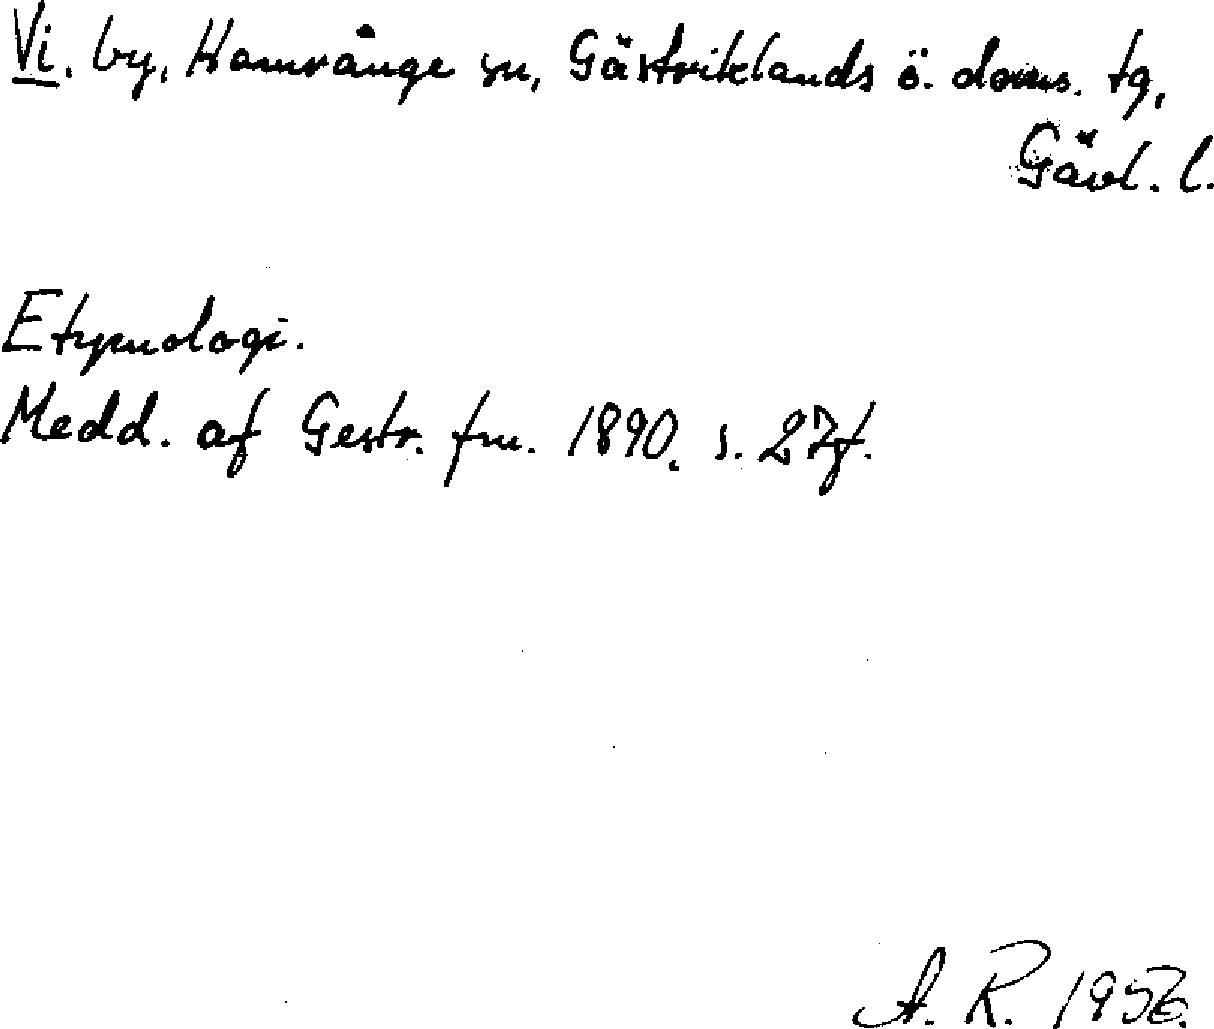 Vi. by, Hamrånge sn, Gästriklands ö. doms. tg,
Gävl. l.
Etymologi.
Medd. af Gestr. fm. 1890. s. 27f.
A. R. 1956.